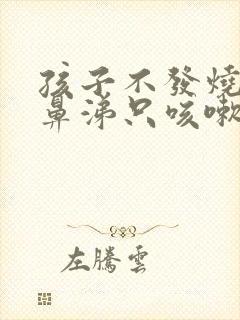 孩子不發燒
鼻涕只咳嗽
左騰雲